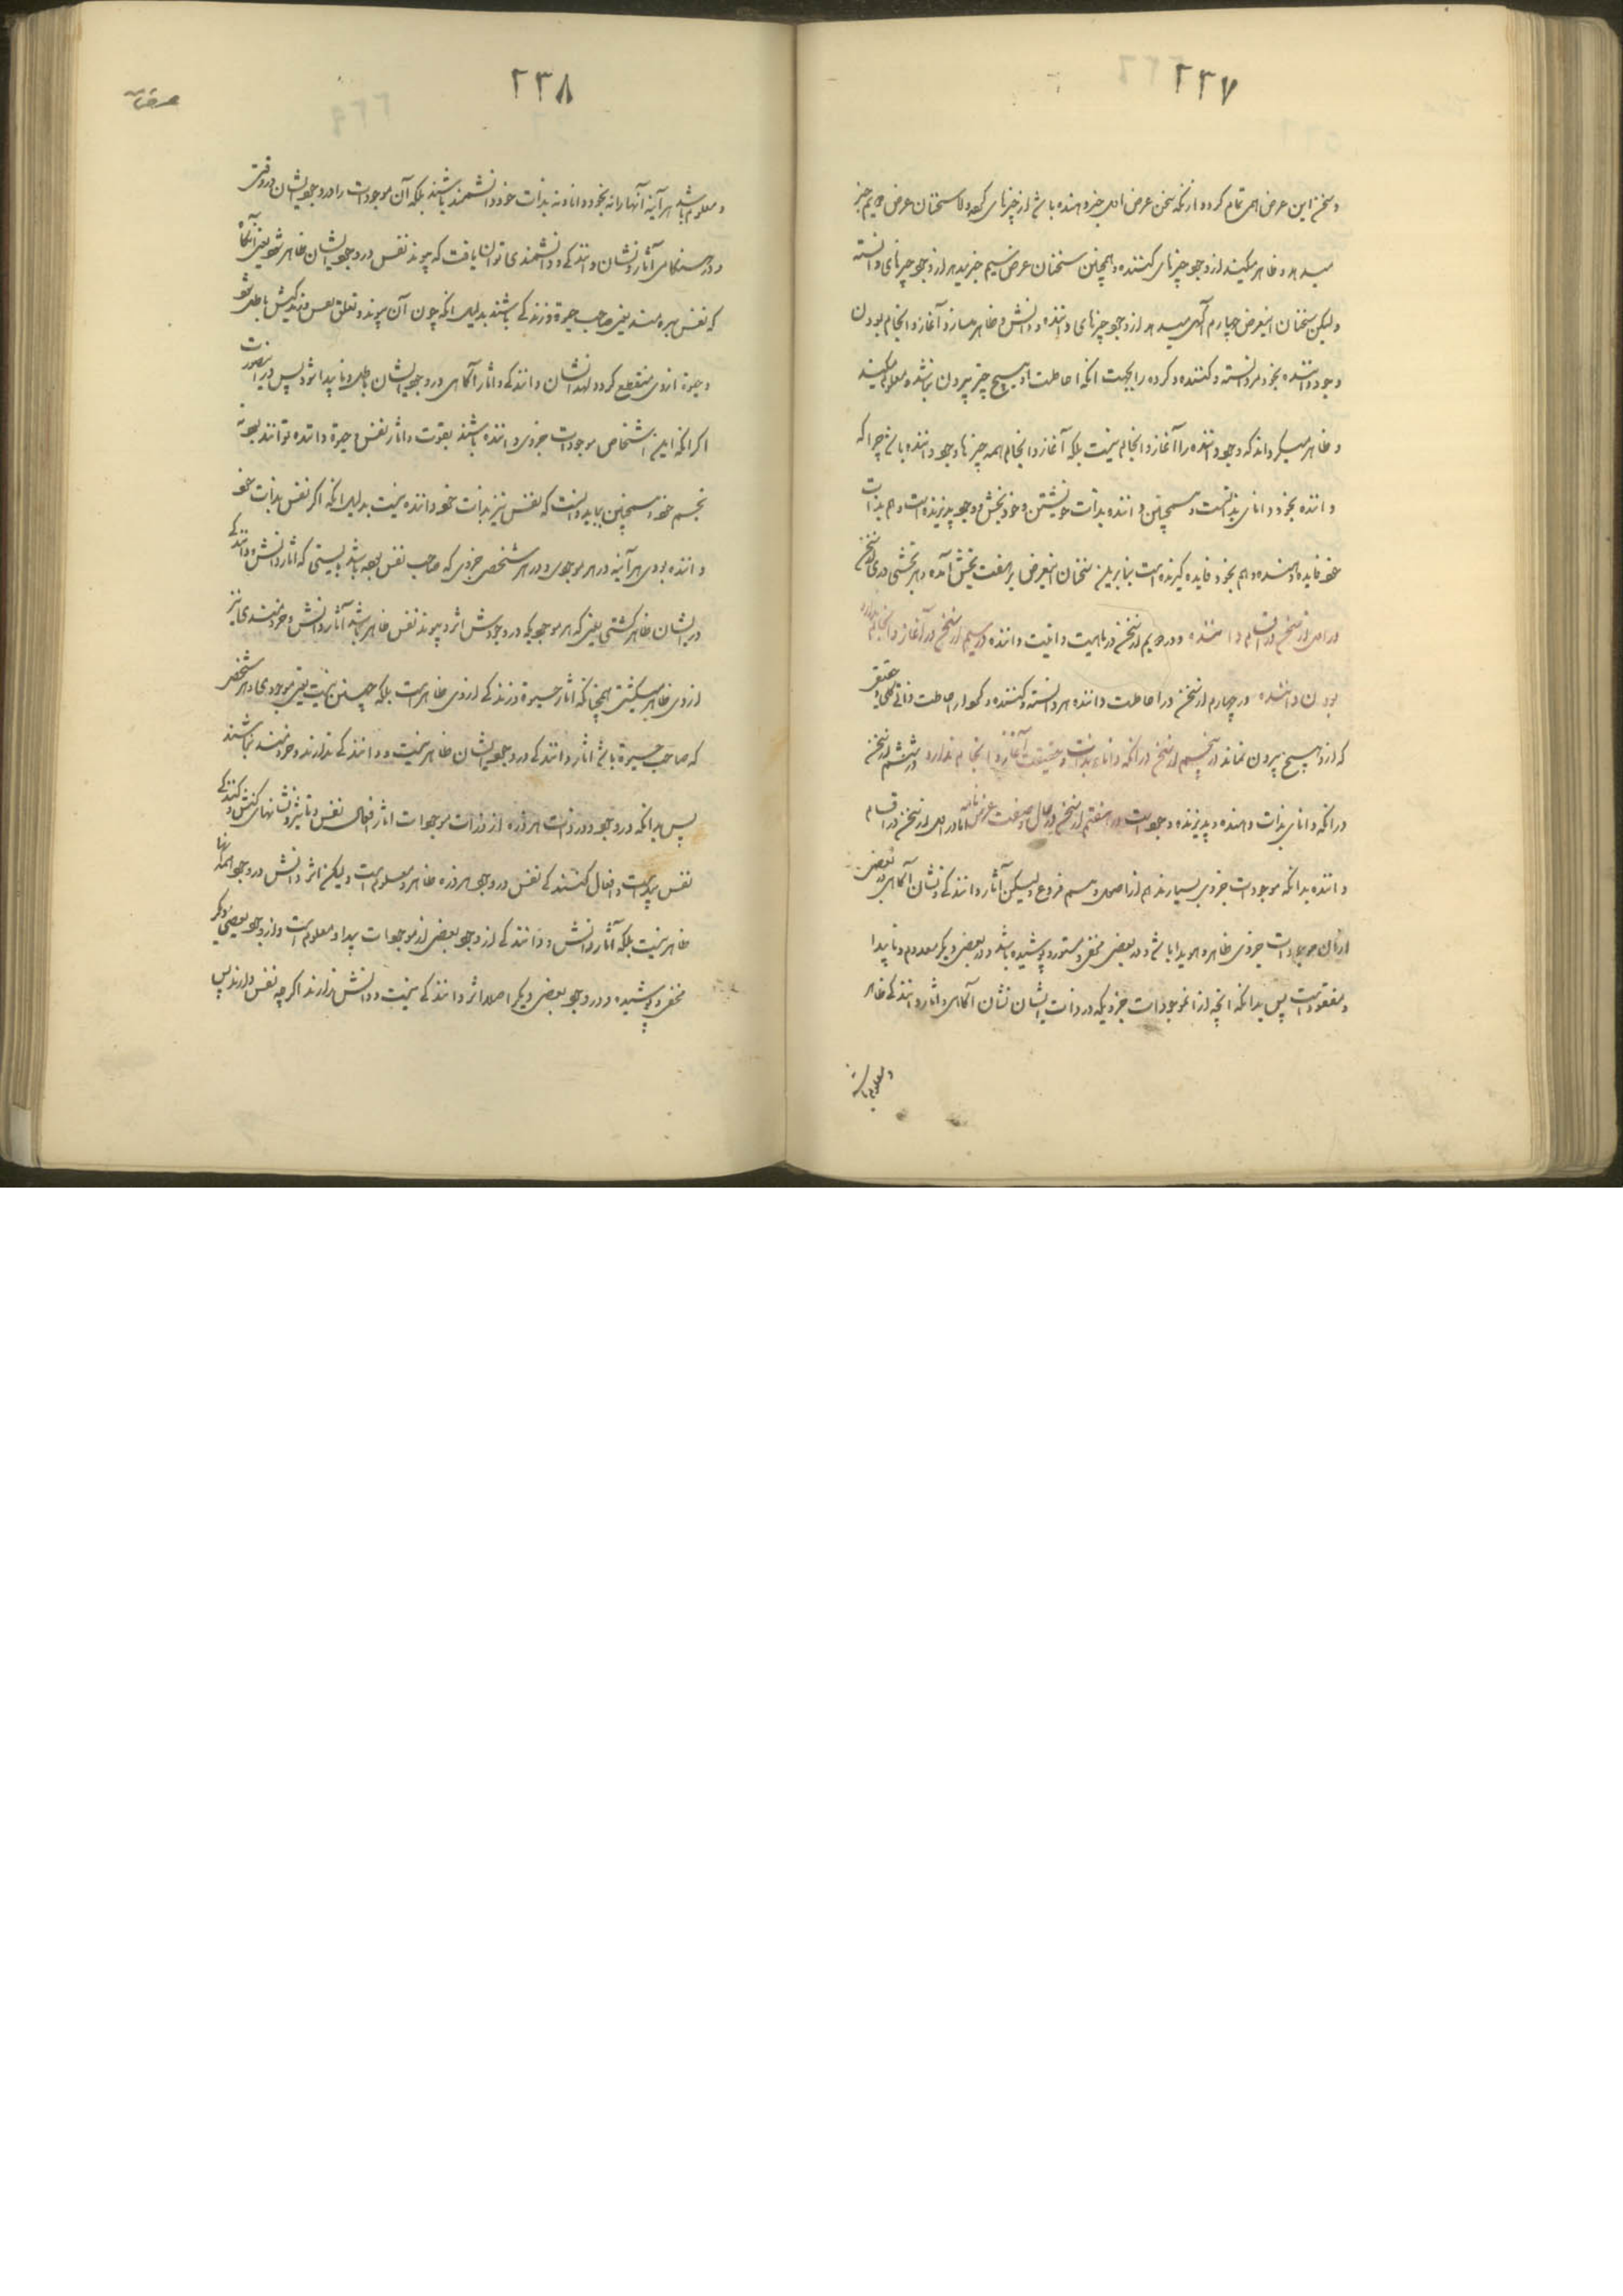 ۲۳۷
و سخن این عرض همی تمام کرده از آنکه سخن عرض اول خبر دهنده باشد از چیزهای کرده و سخنان عرض دویم خبر
میدهد و ظاهر میکند از وجود چیزهای کننده و همچنین سخنان عرض سیم خبر میدهد از وجود چیزهای دانسته
ولیکن سخنان اینعرض چهارم آگهی میدهد از وجود چیزهای داننده و دانش و ظاهر میسازد آغاز و انجام بودن
وجود داننده بخود مر دانسته و کننده و کرده را بجهت آنکه احاطت او هیچ چیز بیرون نباشد و معلوم میکند
و ظاهر میگرداند که وجود داننده را آغاز و انجام نیست بلکه آغاز و انجام همه چیزها وجود داننده باشد چرا که
داننده بخود دانای بذاتست و همچنین داننده بذات خویشتن وجود بخش و وجود پذیرنده است و هم بذات
خود فایده دهنده و هم بخود فایده گیرنده است بنابرین سخنان اینعرض بر هفت بخش آمده و هر بخشی در
در اول از سخن در اقسام داننده و در دویم از سخن در ماهیت و انیت داننده در سیم از سخن در آغاز و انجام
بودن داننده در چهارم از سخن در احاطت داننده هر دانسته و کننده و کرده را احاطت ذاتی حقیقی
که از او هیچ بیرون نماند در پنجم از سخن در آنکه دانای بذات و حقیقت آغاز و انجام ندارد در ششم از سخن
در آنکه دانای بذات دهنده و پذیرنده وجود است در هفتم از سخن در حال و صفت عرض اما در اول از سخن در اقسام
داننده بدانکه موجودات جزوی بسیارند هم از اصول و هم فروع ولیکن آثار دانندگی و نشان آگاهی در بعضی
از آن موجودات جزوی ظاهر و هویدا باشد و در بعضی مخفی و مستور و پوشیده باشد و در بعضی دیگر معدوم و ناپیدا
و مفقود است پس بدانکه آنچه از آن موجودات جزویکه در ذات ایشان نشان آگاهی و آثار دانندگی ظاهر
و معلوم باشد
۲۳۸
و معلوم باشد هر آینه آنها را نه بخود دانا و نه بذات خود دانشمند باشند بلکه آن موجودات را در وجود ایشان در وقتی
و در هنگامی آثار و نشان دانندگی و دانشمندی توان یافت که پیوند نفس در وجود ایشان ظاهر شود یعنی آنگاه
که نفس بهره مند یعنی صاحب حیوة و زندگی باشند بدلیل آنکه چون آن پیوند و تعلق نفس باطل شود
و حیوة از وی منقطع گردد لهذا نشان دانندگی و آثار آگاهی در وجود ایشان باطل و ناپیدا شود پس در این صورت
اگر آنکه این اشخاص موجودات جزوی داننده باشند بقوت و آثار نفس و حیوة داننده توانند بود نه
بجسم خود همچنین بباید دانست که نفس نیز بذات خود داننده نیست بدلیل آنکه اگر نفس بذات خود
داننده بودی هر آینه در هر موجودی و در هر شخصی جزوی که صاحب نفس بوده باشد بایستی که آثار دانش و دانندگی
در ایشان ظاهر گشتی یعنی که هر موجودیکه در وجودش اثر و پیوند نفس ظاهر باشد آثار دانش و خردمندی نیز
از وی ظاهر میگشتی همچنانکه آثار حیوة و زندگی از وی ظاهر است بلکه چنین نیست یعنی موجودی و هر شخص
که صاحب حیوة باشد آثار دانندگی در وجود ایشان ظاهر نیست و دانندگی ندارند و خردمند نباشند
پس بدانکه در وجود و در ذات هر ذره از ذرات موجودات آثار افعال نفس و تاثیر و نشانهای کنش و کنندگی
نفس پیداست و افعال کنندگی نفس در وجود هر ذره ظاهر و معلوم است ولیکن اثر دانش در وجود همه آنها
ظاهر نیست بلکه آثار دانش و دانندگی از وجود بعضی از موجودات پیدا و معلوم است و از وجود بعضی دیگر
مخفی و پوشیده و در وجود بعضی دیگر اصلا اثر دانندگی نیست و دانش ندارند اگر چه نفس دارند پس